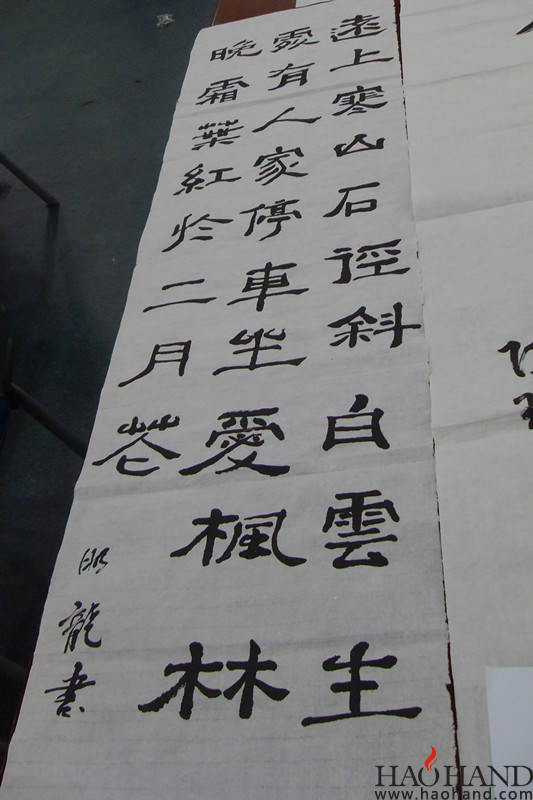 遠上寒山石徑斜白雲生
處有人家停車坐愛楓林
晚霜葉紅於二月花
明龍書
HAOHAND
www.haohand.com